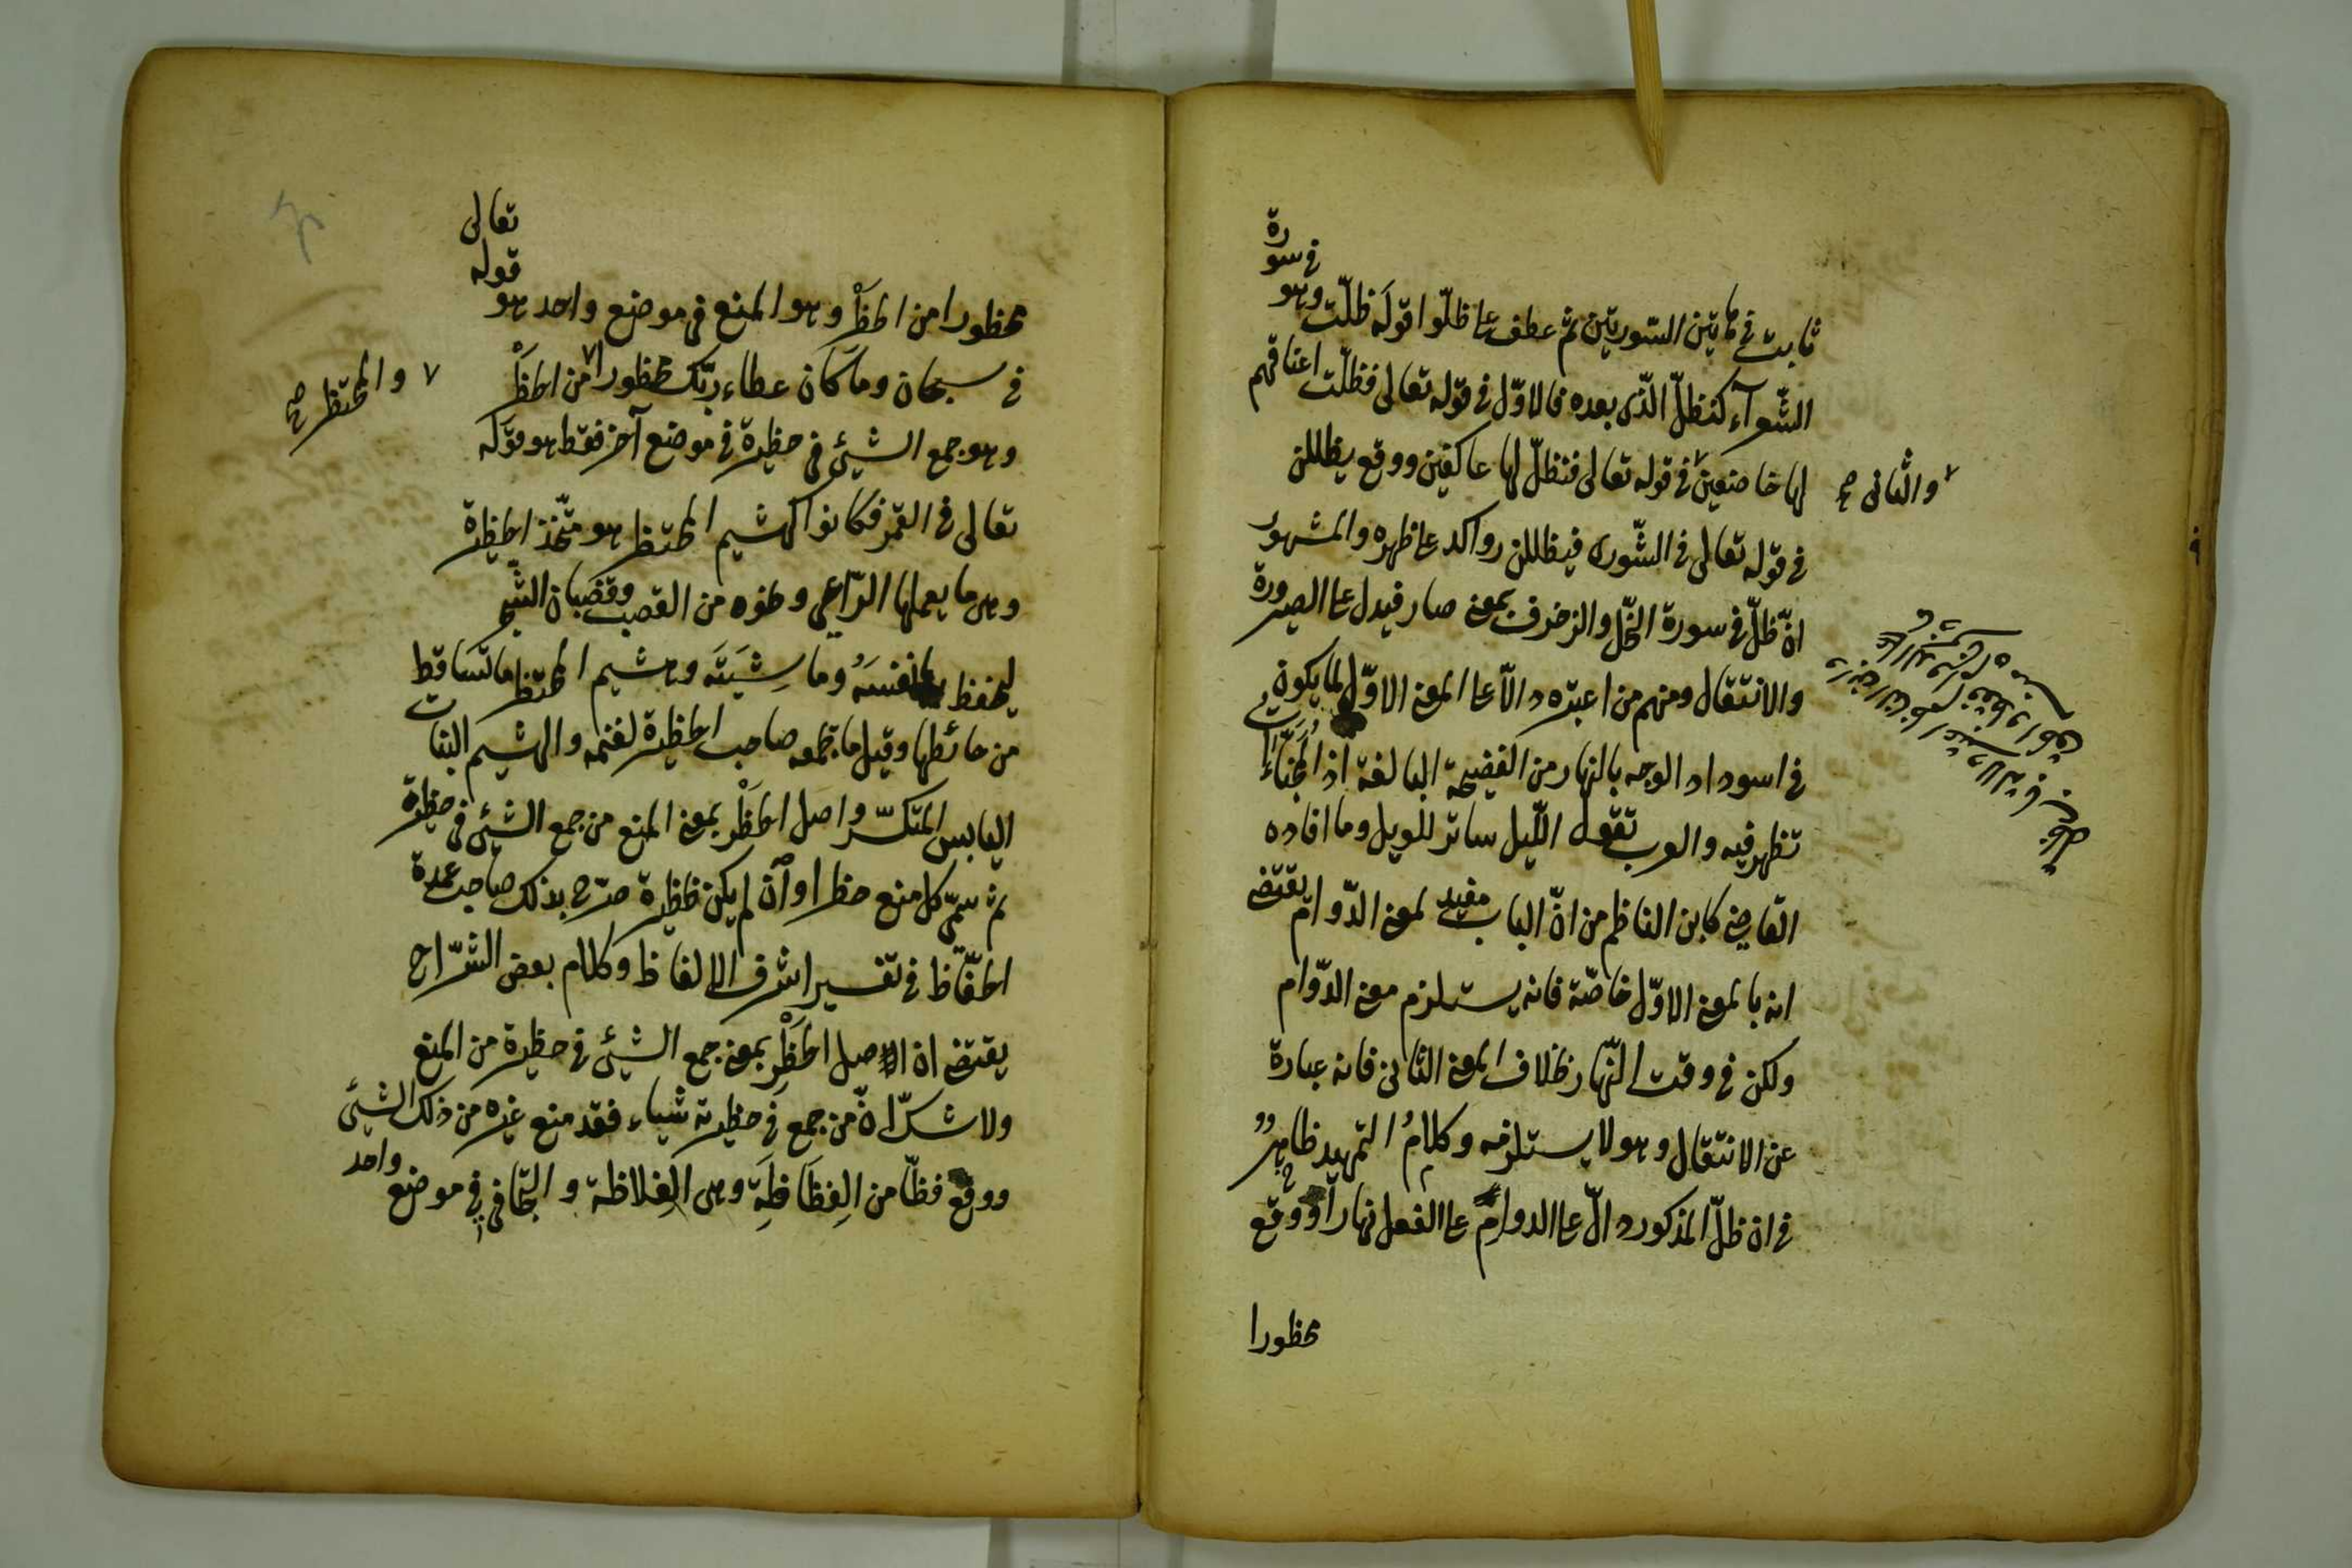 ثابت في هاتين السّورتين ثم عطف على ظلّوا قوله ظلّت وهو في سورة
الشّعرآء كنظلّ الّذى بعده فالاوّل في قوله تعالى فظلّت اعناقهم
لها خاضعين في قوله تعالى فنظلّ لها عاكفين ووقع يظللن
والثانى صح
في قوله تعالى في الشّورى فيظللن رواكد على ظهره والمشهور
انّ ظلّ في سورة النّحل والزخرف بمعنى صار فيدل على الصيرورة
والانتقال ومنهم من اعتبره دالاّ على المعنى الاوّل لما يكون
في اسوداد الوجه بالنهار من الفضيحة البالغة اذ
تظهر فيه والعرب تقول اللّيل ساتر للويل وما افاده
القاضى كابن الناظم من انّ الباب مفيد لمعنى الدّوام يقتضى
انه بالمعنى الاوّل خاصّة فانه يستلزم معنى الدّوام
ولكن في وقت النّهار بخلاف المعنى الثانى فانه عبارة
عن الانتقال وهو لا يستلزمه وكلامُ التمهيد ظاهرٌ
في ان ظلّ المذكور دالّ على الدوام على الفعل نهارا ووقع
محظورا
محظورا من الحظْر وهو المنع في موضع واحد هو قوله تعالى
في سبحان وما كان عطاء ربّك محظورا من الحظْر
والمحتظر صح
وهو جمع الشيئ في حظيرة في موضع آخر فقط هو قوله
تعالى في القمر فكانوا كهشيم المحتظر هو متّخذ الحظيرة
وهى ما يعملها الرّاعي ونحوه من القصب وقضبان الشّجر
ليحفظ بها نفسَهُ وماشِيَتَه وهشيم المحتظر ما تساقط
من حائطها وقيل ما يجمعه صاحب الحظيرة لغنمه والهشيم النبات
اليابس المتكسّر واصل الحظْر بمعنى المنع من جمع الشيئ في حظيرة
ثم سمّى كل منع حظرا وان لم يكن حظيرة صرّح بذلك صاحب عمدة
الحفّاظ في تفسير اشرف الالفاظ وكلام بعض الشّراح
يقتضى ان الاصل الحظْر بمعنى جمع الشيئ في حظيرة من المنع
ولا شكّ انّ من جمع في حظيرته شياء فقد منع غيره من ذلك الشيئ
ووقع فظّا من الفِظَاظَة وهى الغِلاظة والتّجافى في موضع واحد